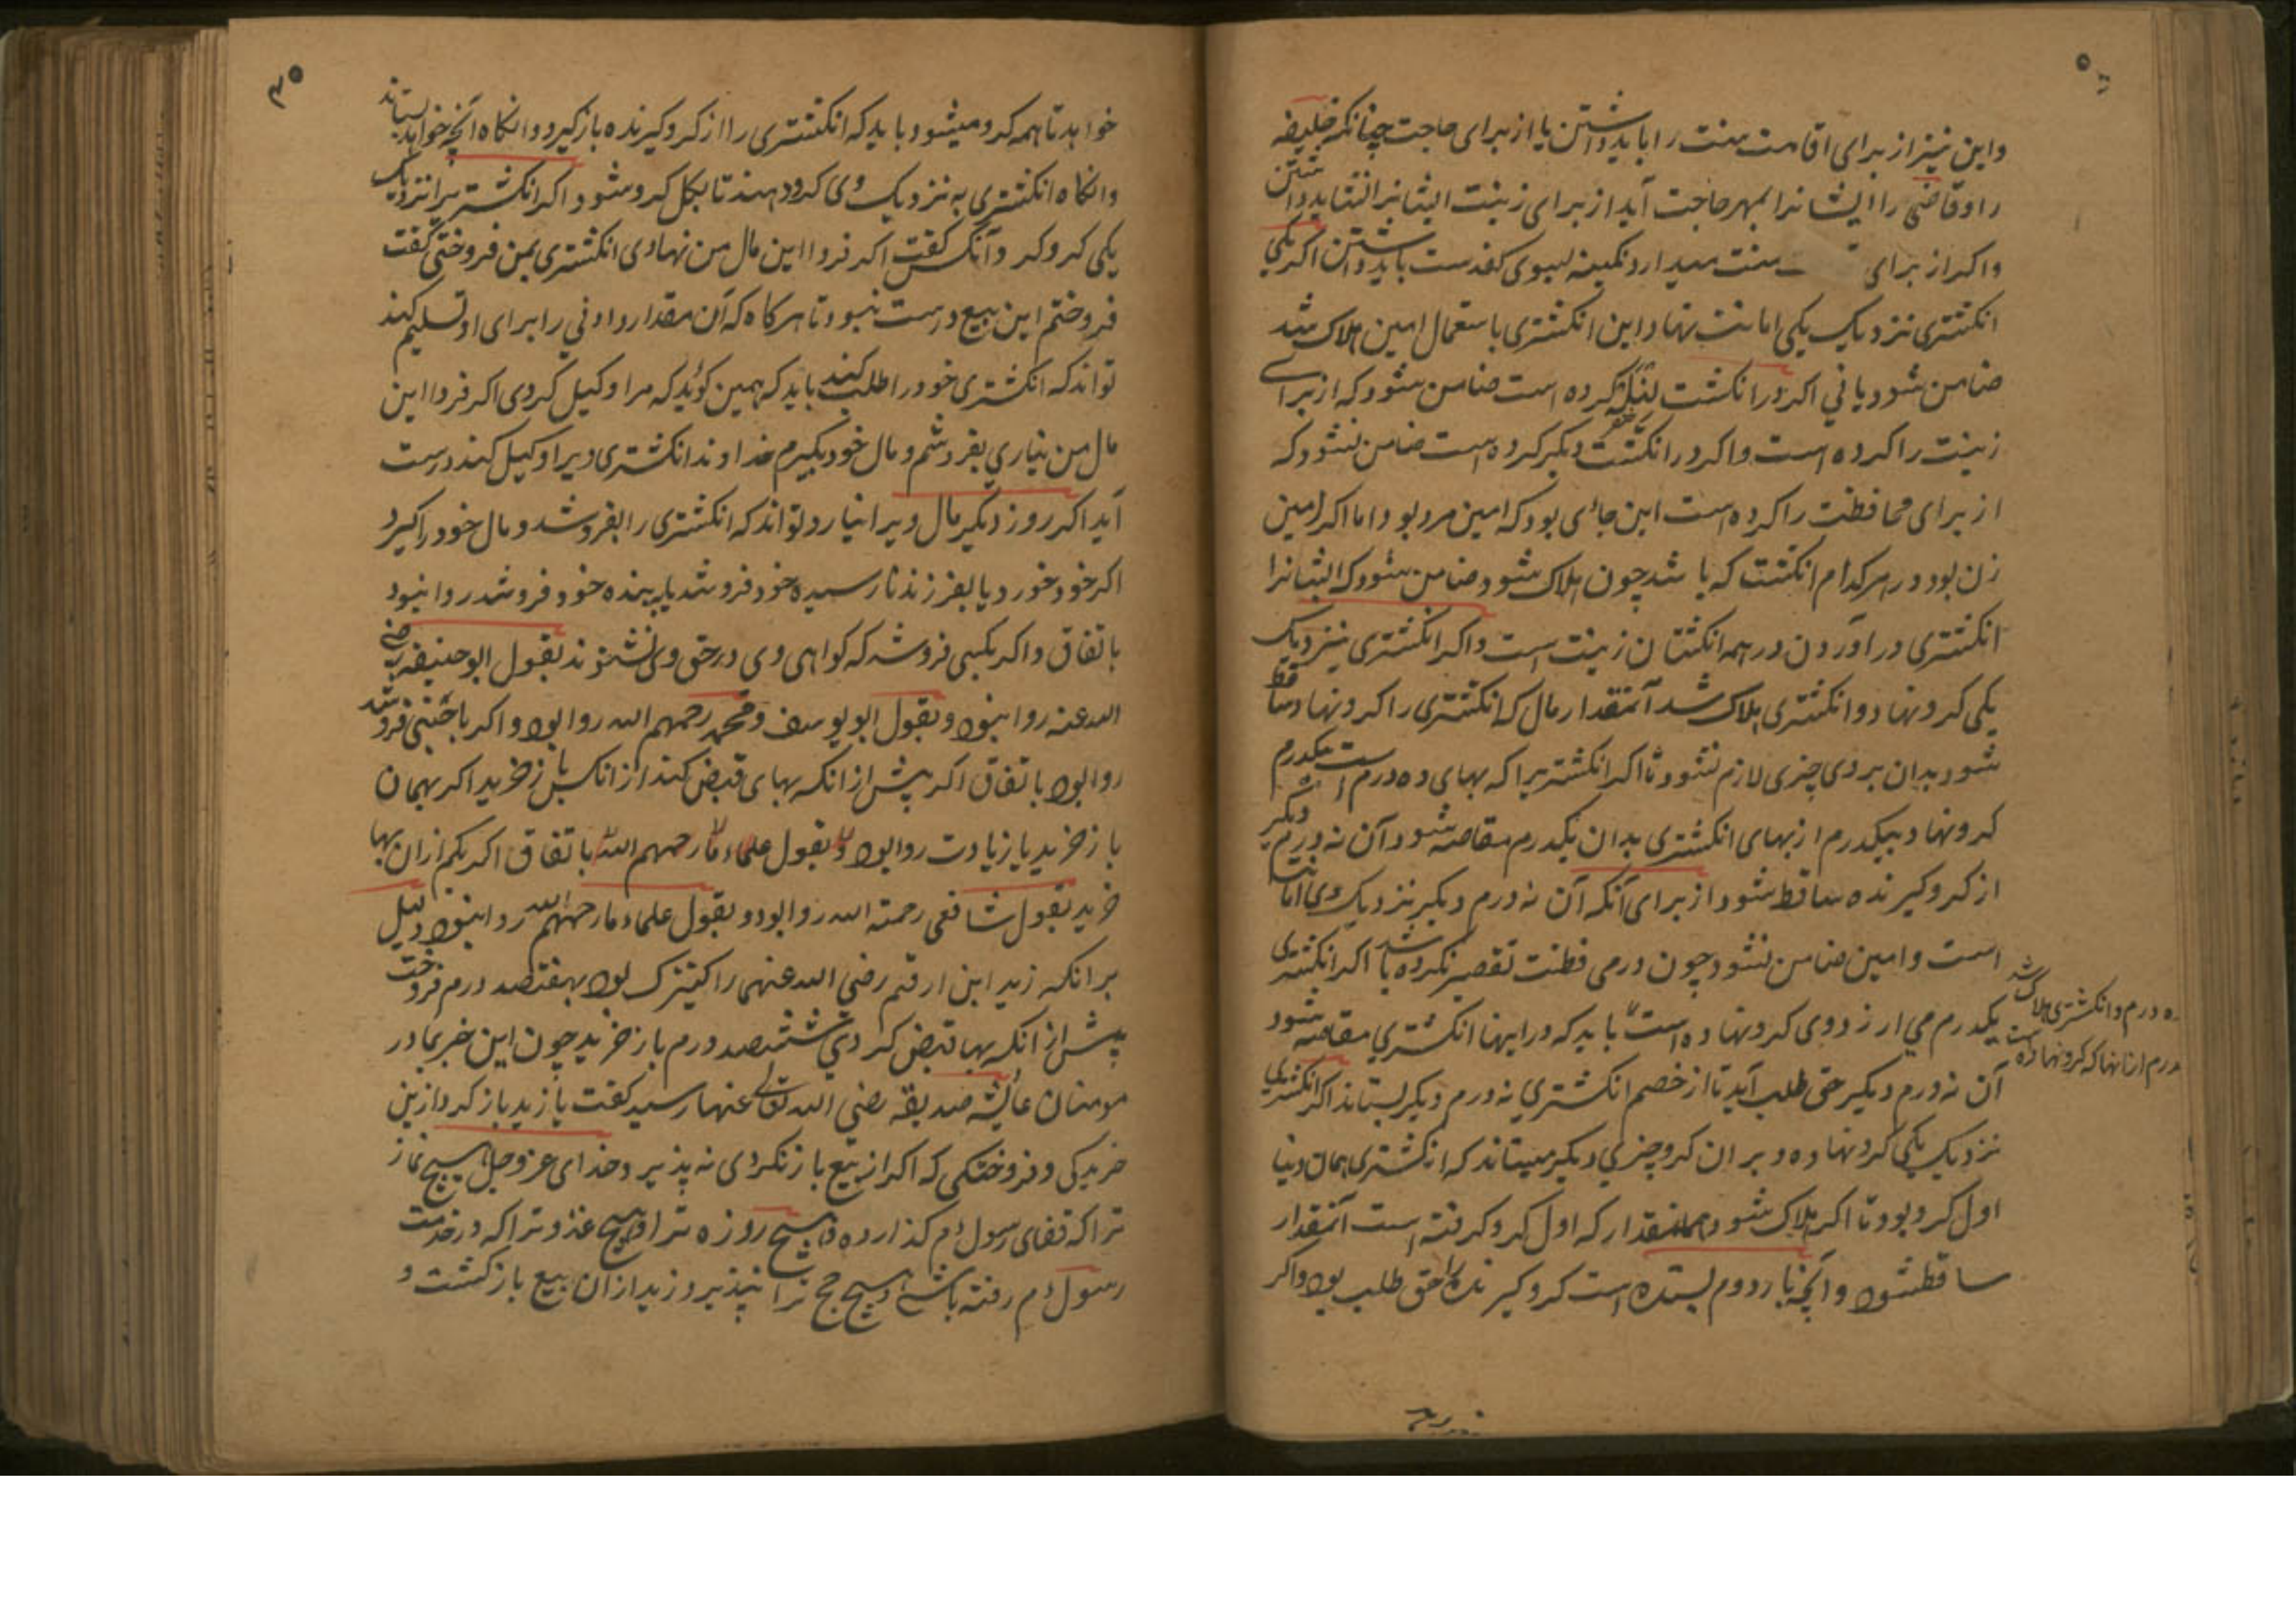 واین نیز از برای اقامت سنت را باید داشتن یا از برای حاجت چنانکه خلیفه
را و قاضی را ایشانرا بمهر حاجت آید از برای زینت ایشانرا نشاید داشتن
واکر از برای سنت میدارد نکینه بسوی کف دست باید داشتن اکر یکی
انکشتری نزدیک یکی امانت نهاد این انکشتری باستعمال امین هلاک شد
ضامن شود یا نی اکر در انکشت کرده است ضامن شود که از برای
زینت را کرده است واکر در انکشت دیکر کرده است ضامن نشود که
از برای محافظت را کرده است این جائی بود که امین مرد بود اما اکر امین
زن بود در هر کدام انکشت که باشد چون هلاک شود ضامن شود که ایشانرا
انکشتری در آوردن در همه انکشتان زینت است واکر انکشتری نیز دیک
یکی کرو نهاد و انکشتری هلاک شد آنمقدار مال که انکشتری را کرو نهاد ساقط
شود بدان بر وی چیزی لازم نشود تا اکر انکشتریرا که بهای ده درم است بیکدرم
کرو نهاد بیکدرم از بهای انکشتری بدان یکدرم مقاصه شود آن نه درم دیکر
از کرو کیرنده ساقط شود از برای آنکه آن نه درم دیکر نزدیک وی امانت
است وامین ضامن نشود چون در محافظت تقصیر نکرده باشد اکر انکشتری
یکدرم می ارزد وی کرو نهاده است باید که در اینها انکشتری مقاصه شود
ده درم وانکشتری هلاک شد
درم ازانها که کرو نهاده است
آن نه درم دیکر حق طلب آید تا از خصم انکشتری نه درم دیکر بستاند اکر انکشتری
نزدیک یکی کرو نهاده و بر ان کرو چیزی دیکر میستاند که انکشتری همان
اول کرو بود تا اکر هلاک شود همانمقدار که اول کرو کرفته است آنمقدار
ساقط شود و آنچه بار دوم بستده است کرو کیرنده را حق طلب بود واکر
۳۵
خواهد تا همه کرو میشود باید که انکشتری را از کرو کیرنده باز کیرد وانکاه آنچه خواهد بستاند
وانکاه انکشتری به نزدیک وی کرو دهند تا بکل کرو شود اکر انکشتریرا نزدیک
یکی کرو کرد وآنکس کفت اکر فردا این مال من نهادی انکشتری بمن فروختی کفت
فروختم این بیع درست نبود تا هرکاه که آن مقدار دادنی را برای او تسلیم کند
تواند که انکشتری خود را طلب کند باید که همین کوید که مرا وکیل کردی اکر فردا این
مال من نیاری بفروشم و مال خود بکیرم خداوند انکشتری ویرا وکیل کند درست
آید اکر روز دیکر مال ویرا نیارد تواند که انکشتری را بفروشد و مال خود را کیرد
اکر خود خورد یا بفرزند نارسیده خود فروشد یا به بنده خود فروشد روا نبود
باتفاق واکر بکسی فروشد که کواهی وی در حق وی نشنوند بقول ابوحنیفه رضی
الله عنه روا نبود و بقول ابویوسف و محمد رحمهم الله روا بود واکر باجنبی فروشد
روا بود باتفاق اکر پیش از انکه بهای قبض کند از انکس باز خرید اکر بهمان
باز خرید یا زیادت روا بود و بقول علماء ما رحمهم الله باتفاق اکر بکم ازان بها
خرید بقول شافعی رحمته الله روا بود و بقول علماء ما رحمهم الله روا نبود دلیل
برانکه زید ابن ارقم رضی الله عنهما را کنیزک بود بهفتصد درم فروخت
پیش از انکه بها قبض کردی ششصد درم باز خرید چون این خبر بمادر
مومنان عایشه صدیقه رضی الله تعالی عنها رسید کفت یا زید باز کرد ازین
خریدکی و فروختکی که اکر از بیع باز نکردی نه پذیرد خدای عز و جل هیچ نماز
ترا که قفای رسول م کذارده و هیچ روزه ترا و هیچ غزو ترا که در خدمت
رسول م رفته باشی و هیچ حج ترا نپذیرد زید ازان بیع باز کشت و